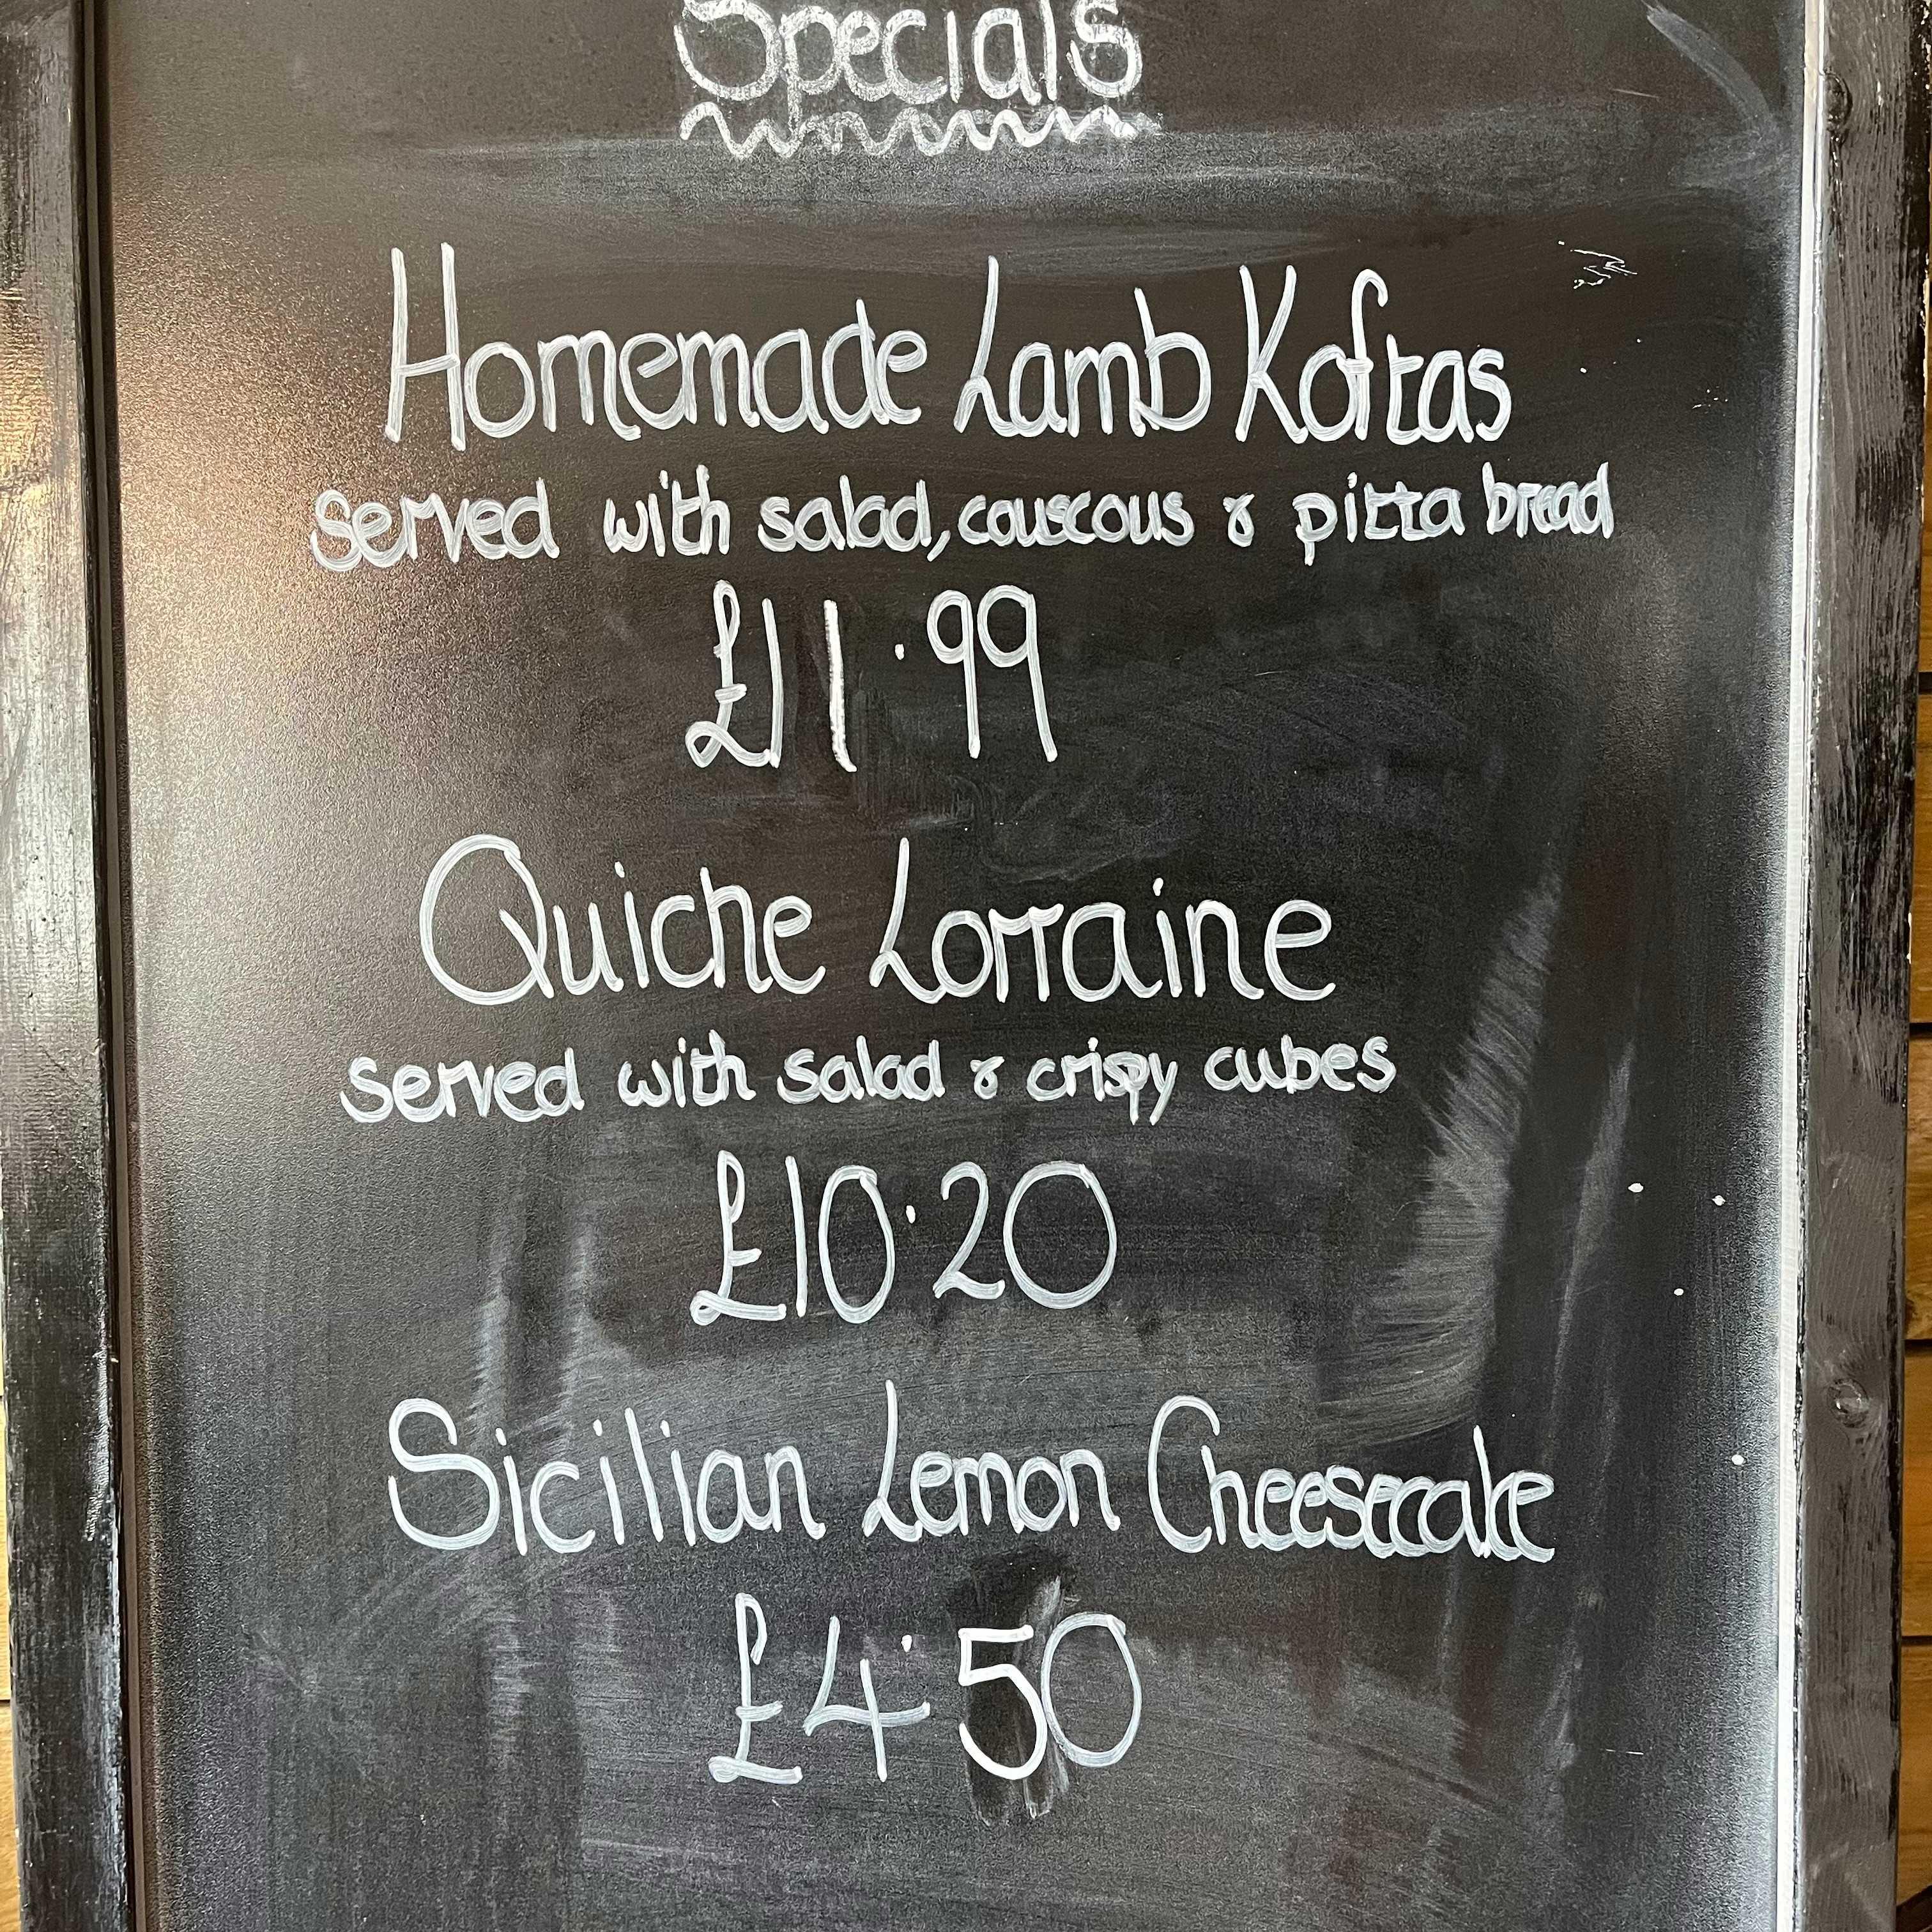 Specials
Homemade Lamb Koftas
served with salad, couscous & pitta bread
£11.99
Quiche Lorraine
served with salad & crispy cubes
£10.20
Sicilian Lemon Cheesecake
£4.50